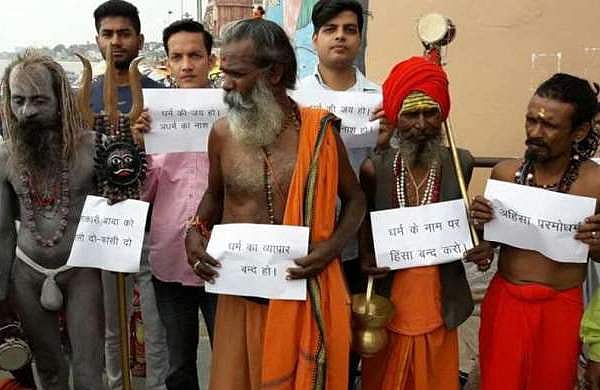 धर्म की जय हो।
अधर्म का नाश
की जय हो।
नाश हो।
बाबा को
दो-फांसी दो
धर्म का व्यापार
बन्द हो।
धर्म के नाम पर
हिंसा बन्द करो।
अहिंसा परमोधर्म